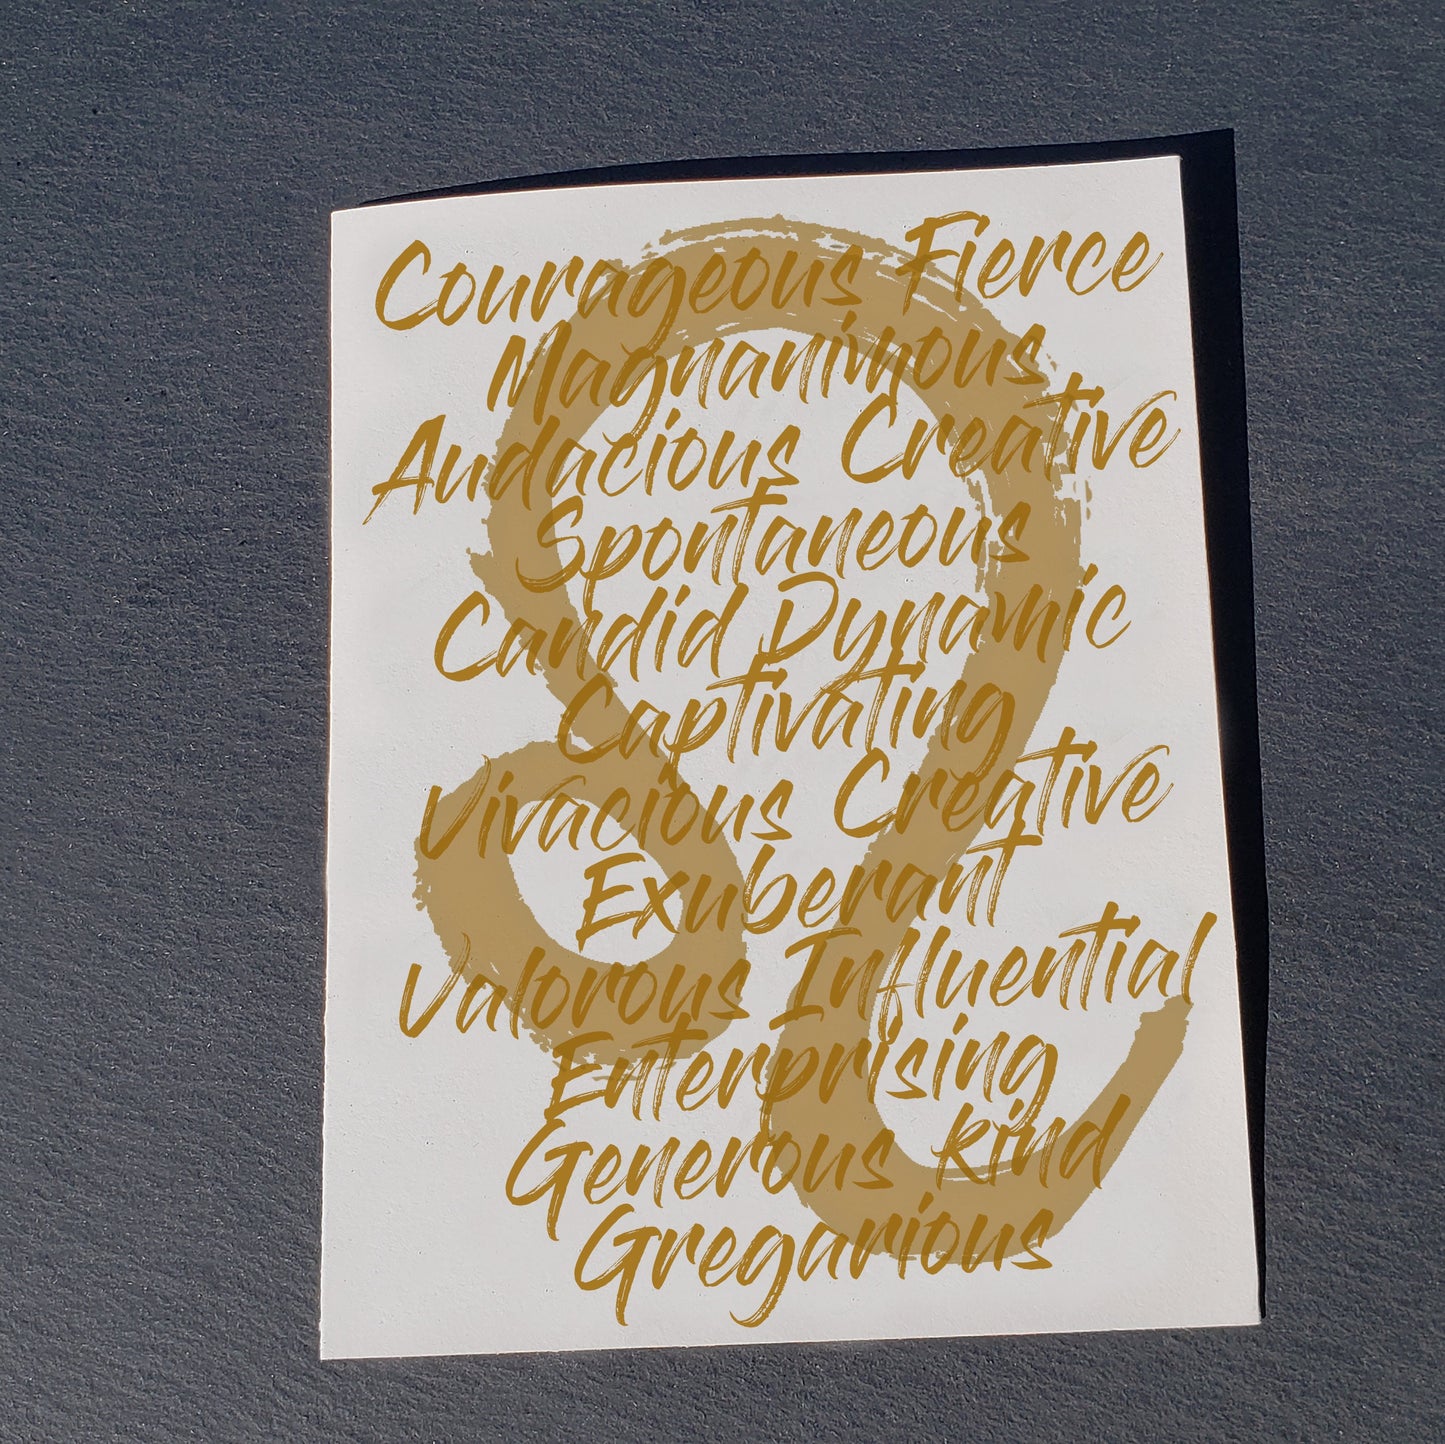 Courageous Fierce
Magnanimous
Audacious Creative
Spontaneous
Candid Dynamic
Captivating
Vivacious Creative
Exuberant
Valorous Influential
Enterprising
Generous kind
Gregarious